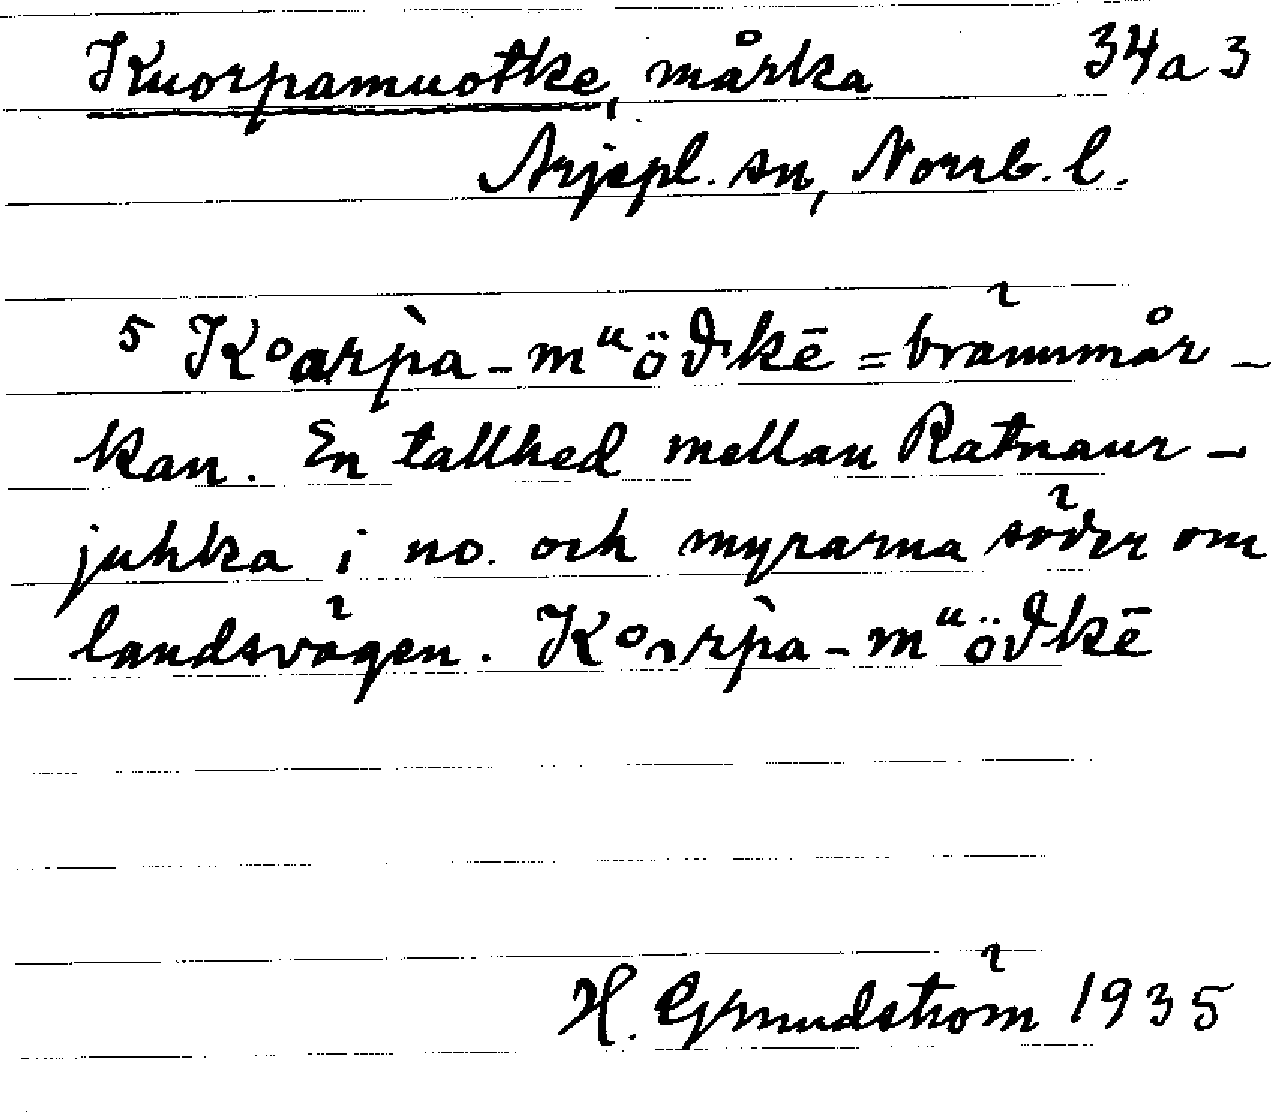 Kuorpamuotke, mårka 34a3
Arjepl. sn, Norrb. l.
5 Kᵒarp̀a-mᵘöđ'kē = brännmår-
kan. En tallhed mellan Ratnaur-
juhka i no. och myrarna söder om
landsvägen. Kᵒarp̀a-mᵘöđkē
H. Grundström 1935